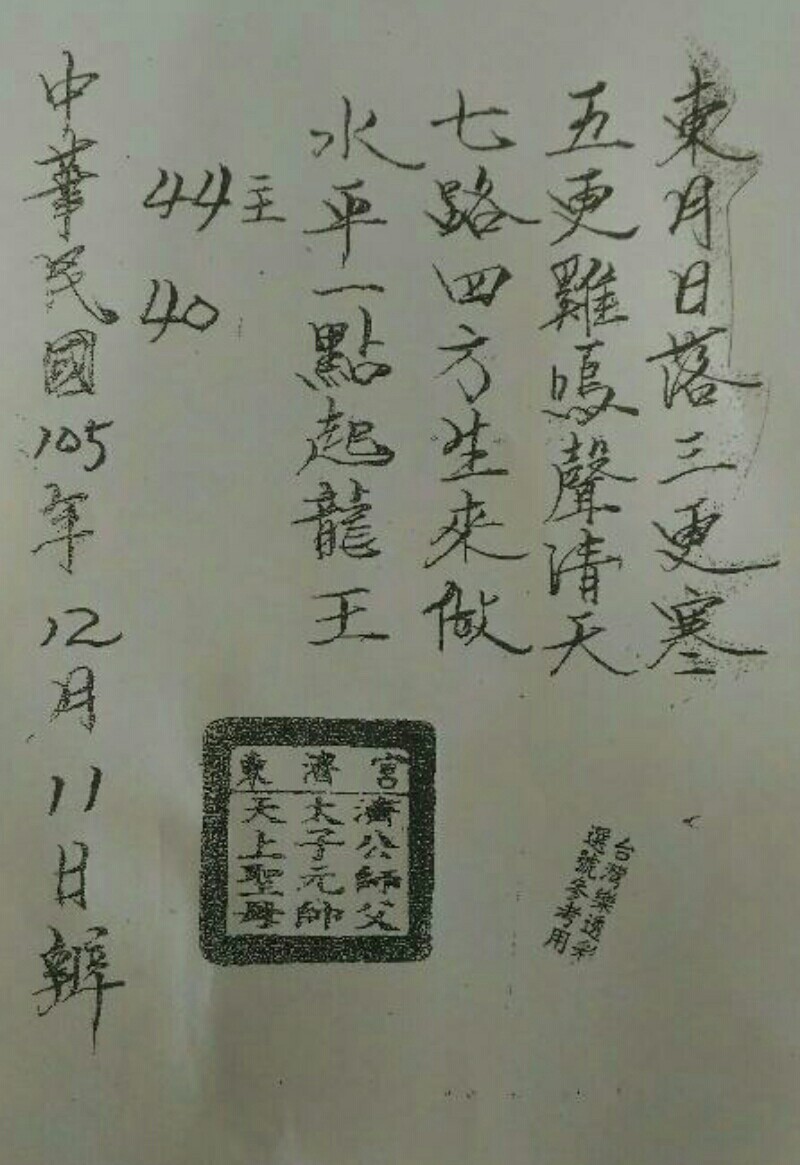 東月日落三更寒
五更雞鳴聲清天
七路四方生來做
水平一點起龍王
44主
40
中華民國105年12月11日辦
東濟宮
濟公師父
太子元帥
天上聖母
台灣樂透彩
選號參考用